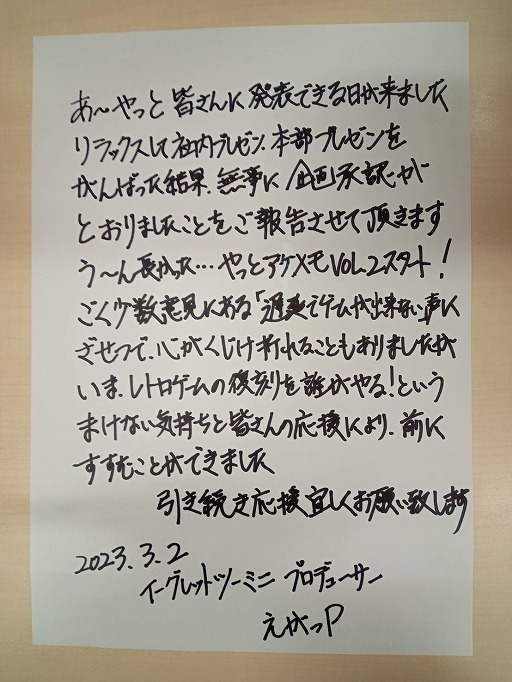 あ〜やっと皆さんに発表できる日が来ました
リラックスして社内プレゼン、本部プレゼンを
がんばった結果、無事に企画承認が
とおりましたことをご報告させて頂きます
う〜ん長かった…やっとアケメモVOL.2スタート!
ごく少数意見にある「遅延でゲームが出来ない」声に
ざせつで、心がくじけ折れることもありましたが
いま、レトロゲームの復刻を誰がやる!という
まけない気持ちと皆さんの応援により、前に
すすむことができました
引き続き応援宜しくお願い致します
2023.3.2
イーグレットツーミニ プロデューサー
えがつP